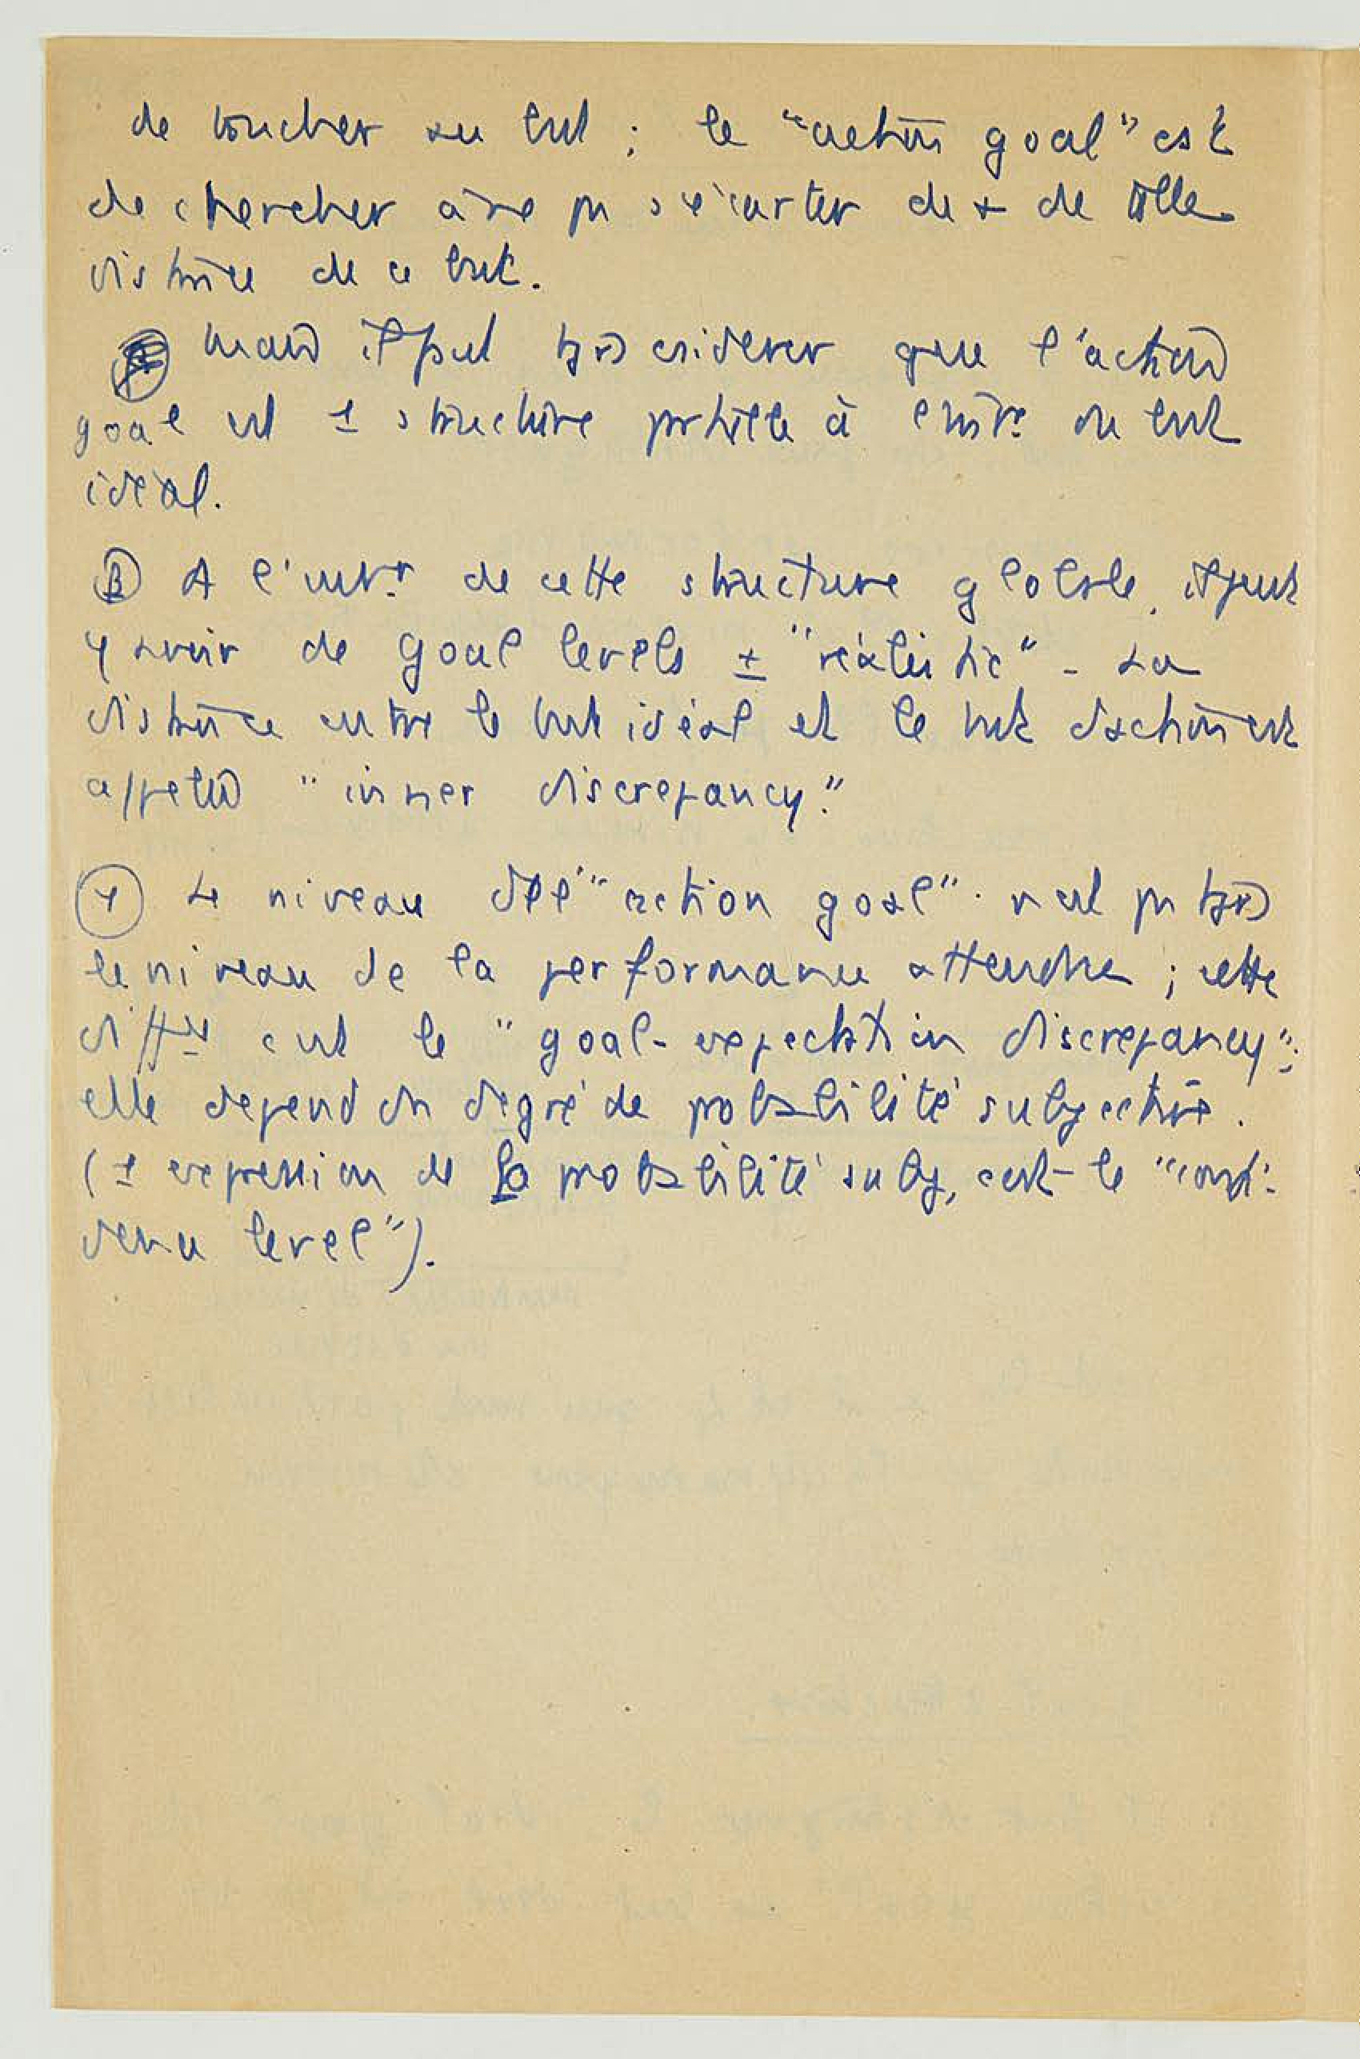 de toucher au but ; le "action goal" est
de chercher à ne pas s'écarter de + de telle
distance de ce but.
mais il faut tjrs csiderer que l'action
goal est 1 structure partielle à l'intr. du but
idéal.
β A l'intr. de cette structure globale, il peut
y avoir de goal levels ± "réalistic" - La
distance entre le but idéal et le but d'action est
appelée "inner discrepancy."
γ Le niveau de l'"action goal" n'est pas tjrs
le niveau de la performance attendue ; cette
diff. est le "goal-expectation discrepancy";
elle depend du degré de probabilité subjective.
(1 expression de la probabilité subj, est le "confi-
dence level").